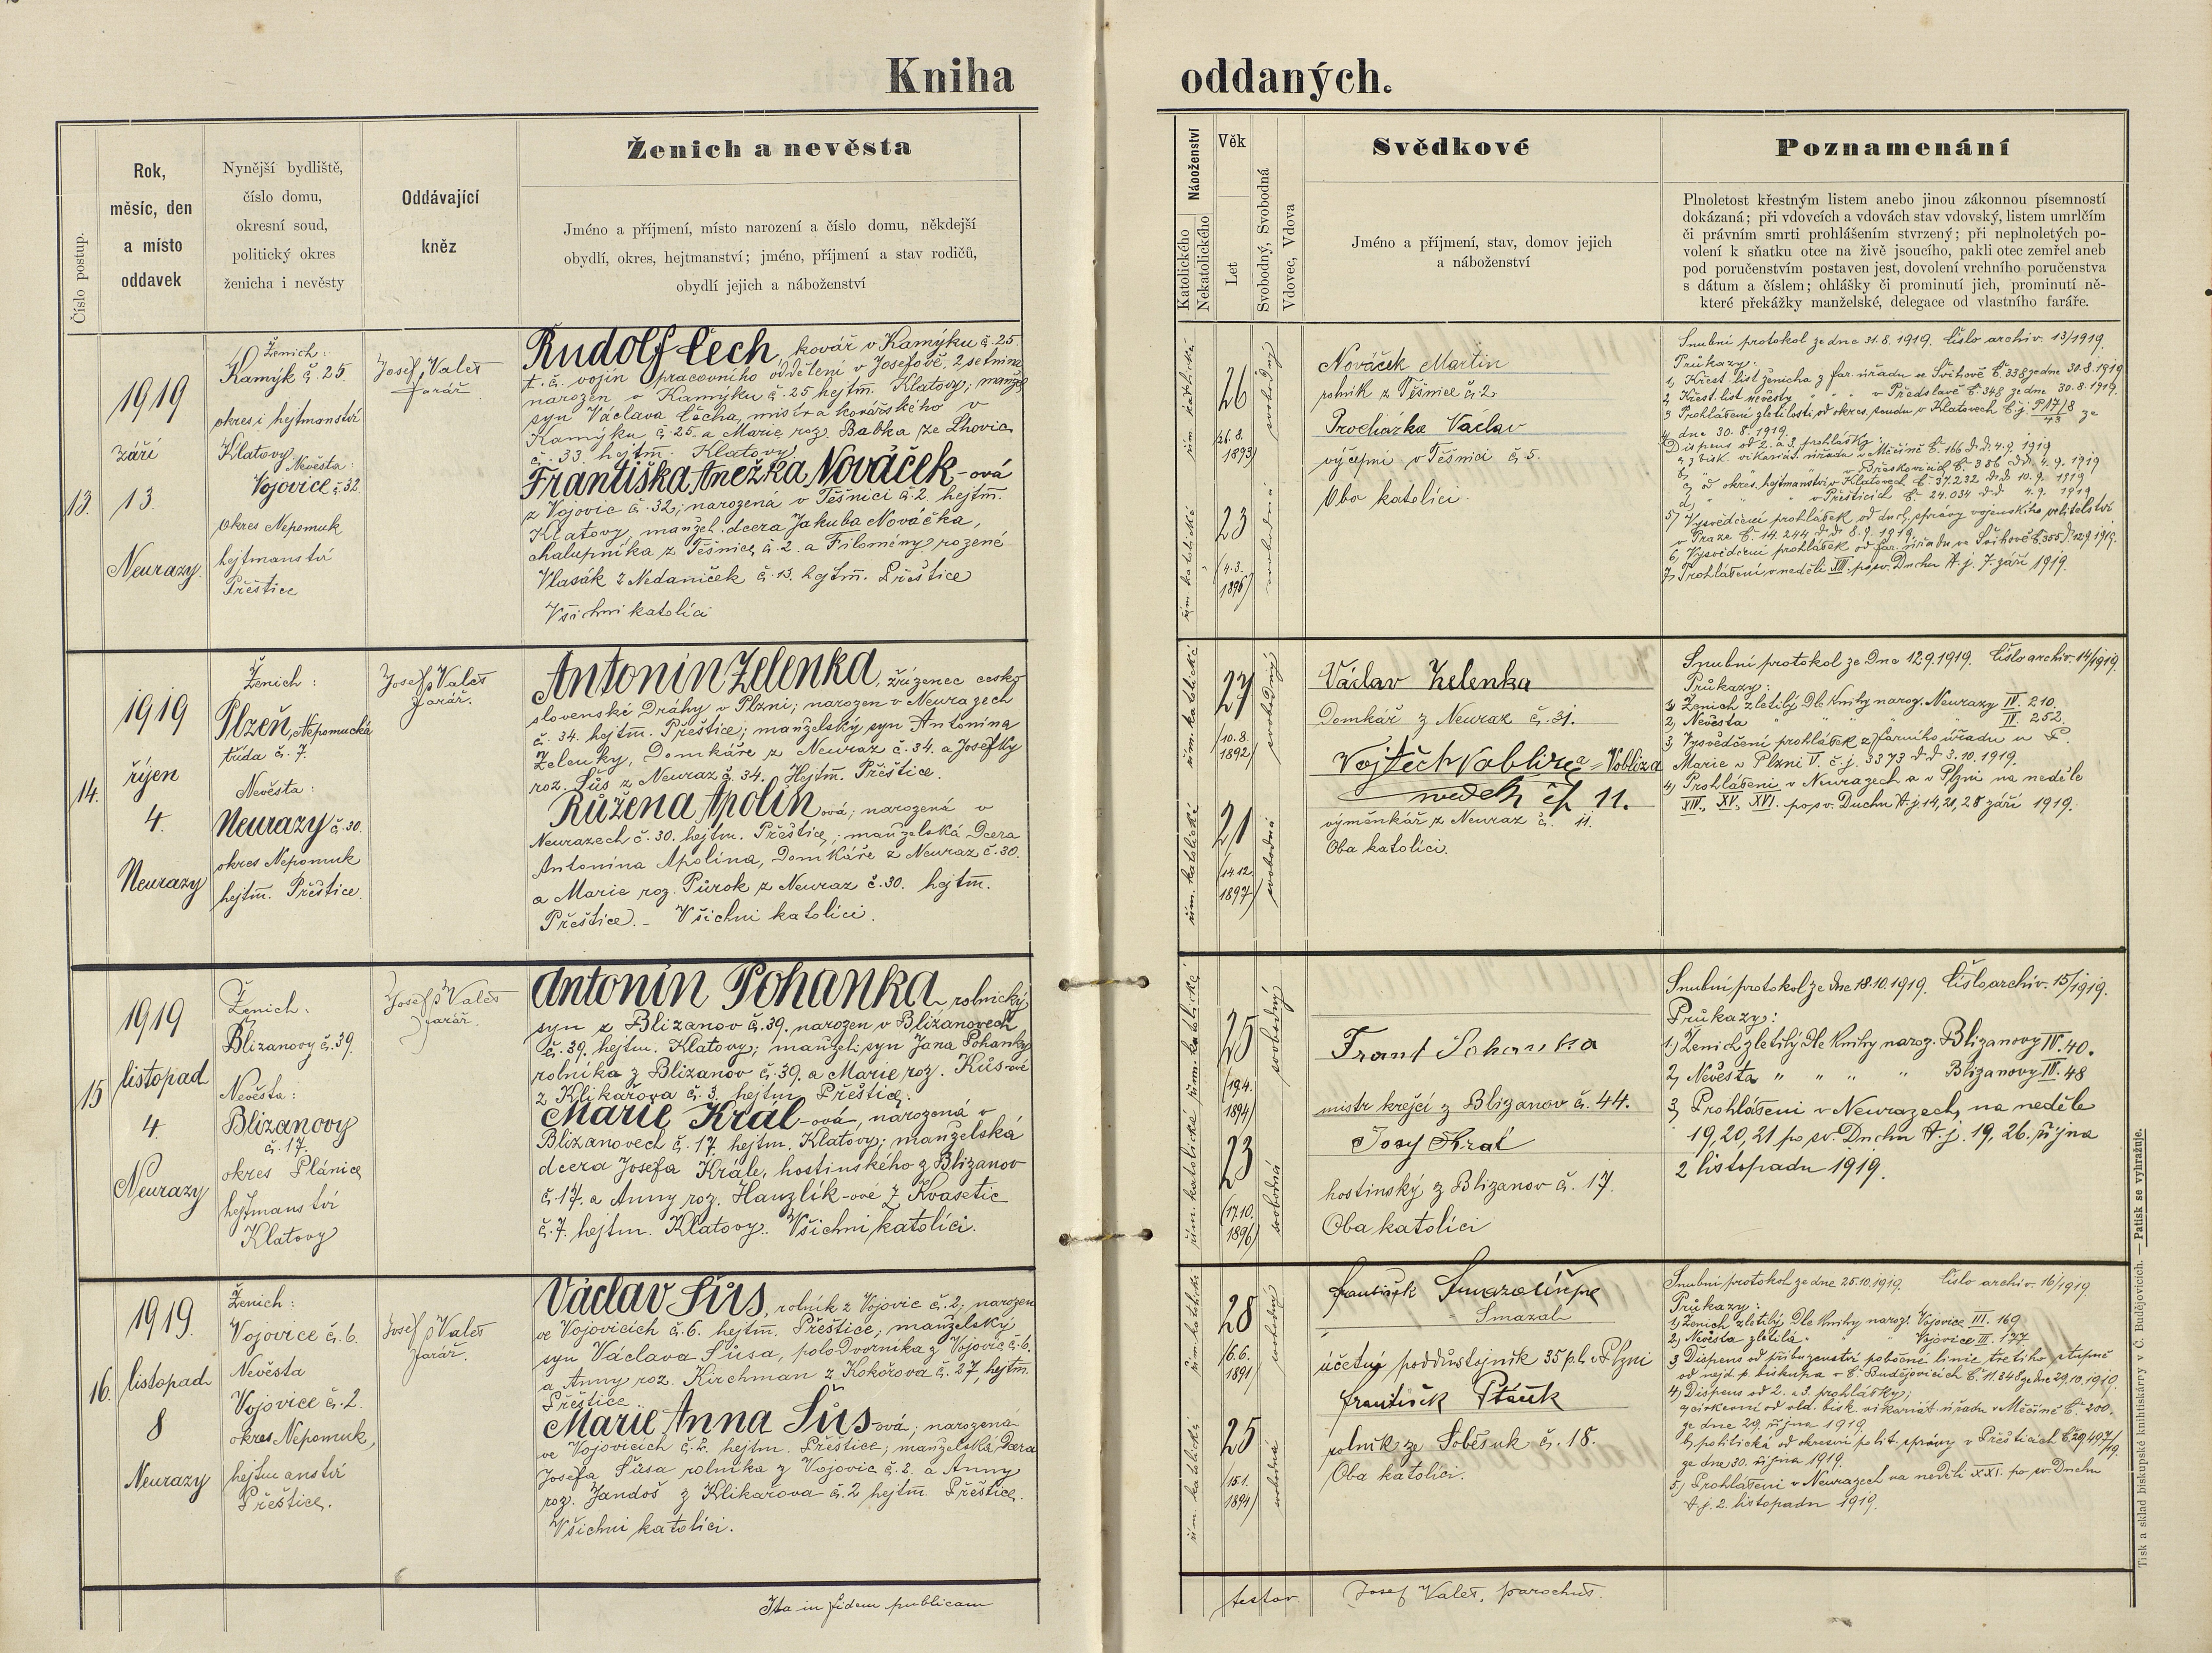 Kniha oddaných.
Číslo postup.
Rok,
měsíc, den
a místo
oddavek
Nynější bydliště,
číslo domu,
okresní soud,
politický okres
ženicha i nevěsty
Oddávající
kněz
Ženich a nevěsta
Jméno a příjmení, místo narození a číslo domu, někdejší
obydlí, okres, hejtmanství; jméno, příjmení a stav rodičů,
obydlí jejich a náboženství
Náboženství
Katolického
Nekatolického
Věk
Let
Svobodný, Svobodná
Vdovec, Vdova
Svědkové
Jméno a příjmení, stav, domov jejich
a náboženství
Poznamenání
Plnoletost křestným listem anebo jinou zákonnou písemností
dokázaná; při vdovcích a vdovách stav vdovský, listem umrlčím
či právním smrti prohlášením stvrzený; při neplnoletých po-
volení k sňatku otce na živě jsoucího, pakli otec zemřel aneb
pod poručenstvím postaven jest, dovolení vrchního poručenstva
s dátum a číslem; ohlášky či prominutí jich, prominutí ně-
které překážky manželské, delegace od vlastního faráře.
13.
1919
září
13.
Neurazy.
Ženich:
Kamýk č. 25.
okres i hejtmanství
Klatovy
Nevěsta:
Vojovice č. 32
okres Nepomuk
hejtmanství
Přeštice
Josef Valeš
farář
Rudolf Čech, kovář v Kamýku č. 25.
t. č. vojín pracovního oddělení v Josefově, 2 setnina
narozen v Kamýku č. 25 hejtm. Klatovy, manžel.
syn Václava Čecha, mistra kovářského v
Kamýku č. 25. a Marie roz. Babka ze Lhovic
č. 33. hejtm. Klatovy.
Františka Anežka Nováček-ová
z Vojovic č. 32; narozená v Těšnici č. 2. hejtm.
Klatovy, manžel. dcera Jakuba Nováčka,
chalupníka z Těšnice č. 2. a Filomény rozené
Vlasák z Nedaniček č. 13. hejtm. Přeštice
Všichni katolíci
řím. katolické
26
(26.8.
1893)
svobodný
řím. katolické
23
(4.3.
1896)
svobodná
Nováček Martin
rolník z Těšnice č. 2
Procházka Václav
výčepní v Těšnici č. 5.
Oba katolíci
Snubní protokol ze dne 31.8.1919. Číslo archiv. 13/1919.
Průkazy:
1, Křest. list ženicha z far. úřadu ve Švihově č. 338 ze dne 30.8.1919
2, Křest. list nevěsty " " " v Předslavě č. 348 ze dne 30.8.1919.
3, Prohlášení zletilosti od okres. soudu v Klatovech č. j. P 17/18 ze
43
dne 30.8.1919.
Dispens od 2. a 3. prohlášky:
a, z bisk. vikariát. úřadu v Měčíně č. 166 d.d. 4.9.1919
b, " " " v Březkovicích č. 386 d.d. 4.9.1919
c, od okres. hejtmanství v Klatovech č. 37.232 d.d. 10.9.1919
d, " " " v Přešticích č. 24.034 d.d. 4.9.1919
5, Vysvědčení prohlášek od duch. správy vojenského velitelství
v Praze č. 14.244 d.d. 8.9.1919.
6, Vysvědčení prohlášek od far. úřadu ve Švihově č. 355 d. 12.9.1919.
7, Prohlášení v neděli XIII. po sv. Duchu t. j. 7. září 1919.
14.
1919
říjen
4.
Neurazy
Ženich:
Plzeň, Nepomucká
třída č. 7.
Nevěsta:
Neurazy č. 30.
okres Nepomuk
hejtm. Přeštice.
Josef Valeš
farář.
Antonín Zelenka, zřízenec česko
slovenské Dráhy v Plzni; narozen v Neurazech
č. 34. hejtm. Přeštice; manželský syn Antonína
Zelenky, Domkáře z Neuraz č. 34. a Josefky
roz. Šůs z Neuraz č. 34. Hejtm. Přeštice.
Růžena Apolín ová; narozená v
Neurazech č. 30. hejtm. Přeštice; manželská Dcera
Antonína Apolína, Domkáře z Neuraz č. 30.
a Marie roz. Půrok z Neuraz č. 30. hejtm.
Přeštice. - Všichni katolíci.
řím. katolické
27
(10.8.
1892)
svobodný
řím. katolické
21
(14.12.
1897)
svobodná
Václav Zelenka
Domkář z Neuraz č. 31.
Vojtěch Vobliza = Vobliza
svědek čp 11.
výměnkář z Neuraz č. 11.
Oba katolíci.
Snubní protokol ze Dne 12.9.1919. Číslo archiv. 14/1919.
Průkazy:
1, Ženich zletilý Dle Knihy naroz. Neurazy IV. 210.
2, Nevěsta " " " " IV. 252.
3, Vysvědčení prohlášek z farního úřadu u P.
Marie v Plzni V. č. j. 3373 d.d. 3.10.1919.
4, Prohlášení v Neurazech a v Plzni na neděle
XIV., XV., XVI. po sv. Duchu t. j. 14, 21, 28 září 1919.
15
1919
listopad
4.
Neurazy
Ženich:
Blizanovy č. 39.
Nevěsta:
Blizanovy
č. 17.
okres Plánice
hejtmanství
Klatovy
Josef Valeš
farář.
Antonín Pohanka rolnický
syn z Blizanov č. 39. narozen v Blizanovech
č. 39. hejtm. Klatovy; manžel. syn Jana Pohanky
rolníka z Blizanov č. 39. a Marie roz. Kůs-ové
z Klikařova č. 3. hejtm. Přeštice.
Marie Král-ová, narozená v
Blizanovech č. 17. hejtm. Klatovy; manželská
dcera Josefa Krále, hostinského z Blizanov
č. 17. a Anny roz. Hanzlík-ové z Kvasetic
č. 7. hejtm. Klatovy. Všichni katolíci.
řím. katolické
25
(19.4.
1894)
svobodný
řím. katolické
23
(17.10.
1896)
svobodná
Frant Pohanka
mistr krejčí z Blizanov č. 44.
Josef Král
hostinský z Blizanov č. 17.
Oba katolíci
Snubní protokol ze dne 18.10.1919. Číslo archiv. 15/1919.
Průkazy:
1.) Ženich zletilý Dle Knihy naroz. Blizanovy IV. 40.
2, Nevěsta " " " " Blizanovy III. 48
3, Prohlášení v Neurazech, na neděle
19, 20, 21 po sv. Duchu t. j. 19, 26. října
2 listopadu 1919.
16.
1919.
listopad
8
Neurazy
Ženich:
Vojovice č. 6.
Nevěsta
Vojovice č. 2.
okres Nepomuk,
hejtmanství
Přeštice.
Josef Valeš
farář.
Václav Šůs, rolník z Vojovic č. 2; narozen
ve Vojovicích č. 6. hejtm. Přeštice; manželský
syn Václava Šůsa, poloDvorníka z Vojovic č. 6.
a Anny roz. Kirchman z Kokořova č. 27, hejtm.
Přeštice.
Marie Anna Šůs-ová; narozená
ve Vojovicích č. 2. hejtm. Přeštice; manželská Dcera
Josefa Šůsa rolníka z Vojovic č. 2. a Anny
roz. Jandoš z Klikařova č. 2 hejtm. Přeštice.
Všichni katolíci.
řím. katolické
28
(6.6.
1891)
svobodný
řím. katolické
25
(15.1.
1894)
svobodná
František
Smazal
účetní poddůstojník 35 p. pl. v Plzni
František Ptáčk
rolník ze Soběsuk č. 18.
Oba katolíci.
Snubní protokol ze dne 25.10.1919. Číslo archiv. 16/1919
Průkazy:
1, Ženich zletilý Dle Knihy naroz. Vojovice III. 169
2, Nevěsta zletilá " " Vojovice III. 177
3, Dispens od příbuzenství pobočné linie třetího stupně
od nejd. p. biskupa v Č. Budějovicích č. 11.348 ze dne 29.10.1919.
4, Dispens od 2. a 3. prohlášky;
a, církevní od vld. bisk. vikariát. úřadu v Měčíně č. 200.
ze dne 29. října 1919.
b, politická od okresní polit. správy v Přešticích č. 29497/19.
ze dne 30. října 1919.
5, Prohlášení v Neurazech na neděli XXI. po sv. Duchu
t. j. 2. listopadu 1919.
Ita in fidem publicam testor Josef Valeš, parochus.
Tisk a sklad biskupské knihtiskárny v Č. Budějovicích. — Patisk se vyhražuje.